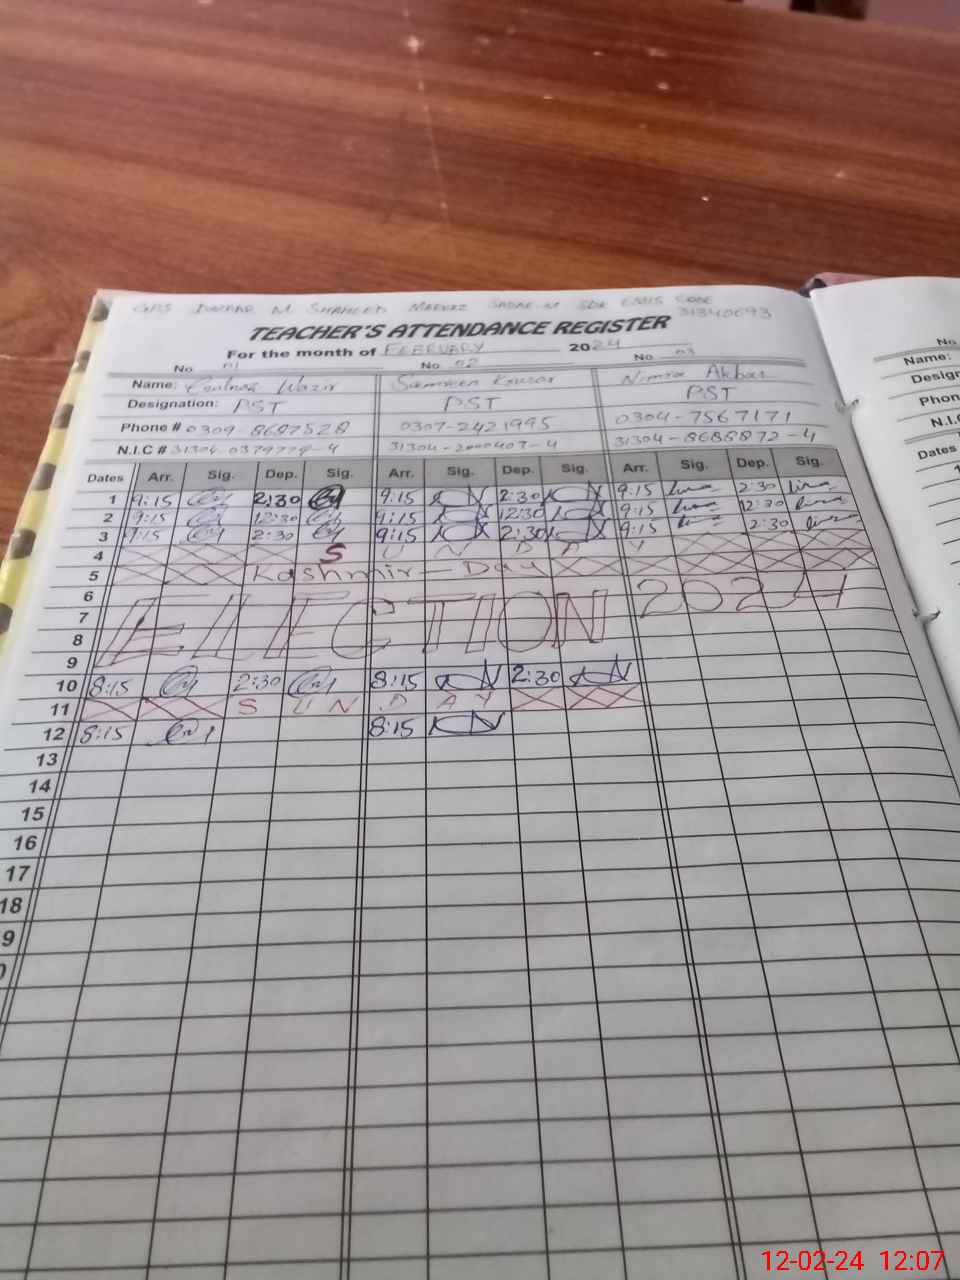 GPS M SHAHEED MARKAZ SADAR-M SDK EMIS CODE
31340693
TEACHER'S ATTENDANCE REGISTER
For the month of FEBRUARY 2024
No 01 No 02 No 03
Name: Wazir Samreen Kousar Nimra Akbar
Designation: PST PST PST
Phone # 0309-8687528 0307-2421995 0304-7567171
N.I.C # 31304-0379779-4 31304-2000407-4 31304-8688872-4
Dates Arr. Sig. Dep. Sig. Arr. Sig. Dep. Sig. Arr. Sig. Dep. Sig.
1 9:15 2:30 9:15 2:30 9:15 2:30
2 9:15 12:30 9:15 12:30 9:15 12:30
3 9:15 2:30 9:15 2:30 9:15 2:30
4 SUNDAY
5 Kashmir-Day
6
7 ELECTION 2024
8
9
10 8:15 2:30 8:15 2:30
11 SUNDAY
12 8:15 8:15
13
14
15
16
17
18
9
No
Name:
Design
Phon
N.I.C
Dates
12-02-24 12:07